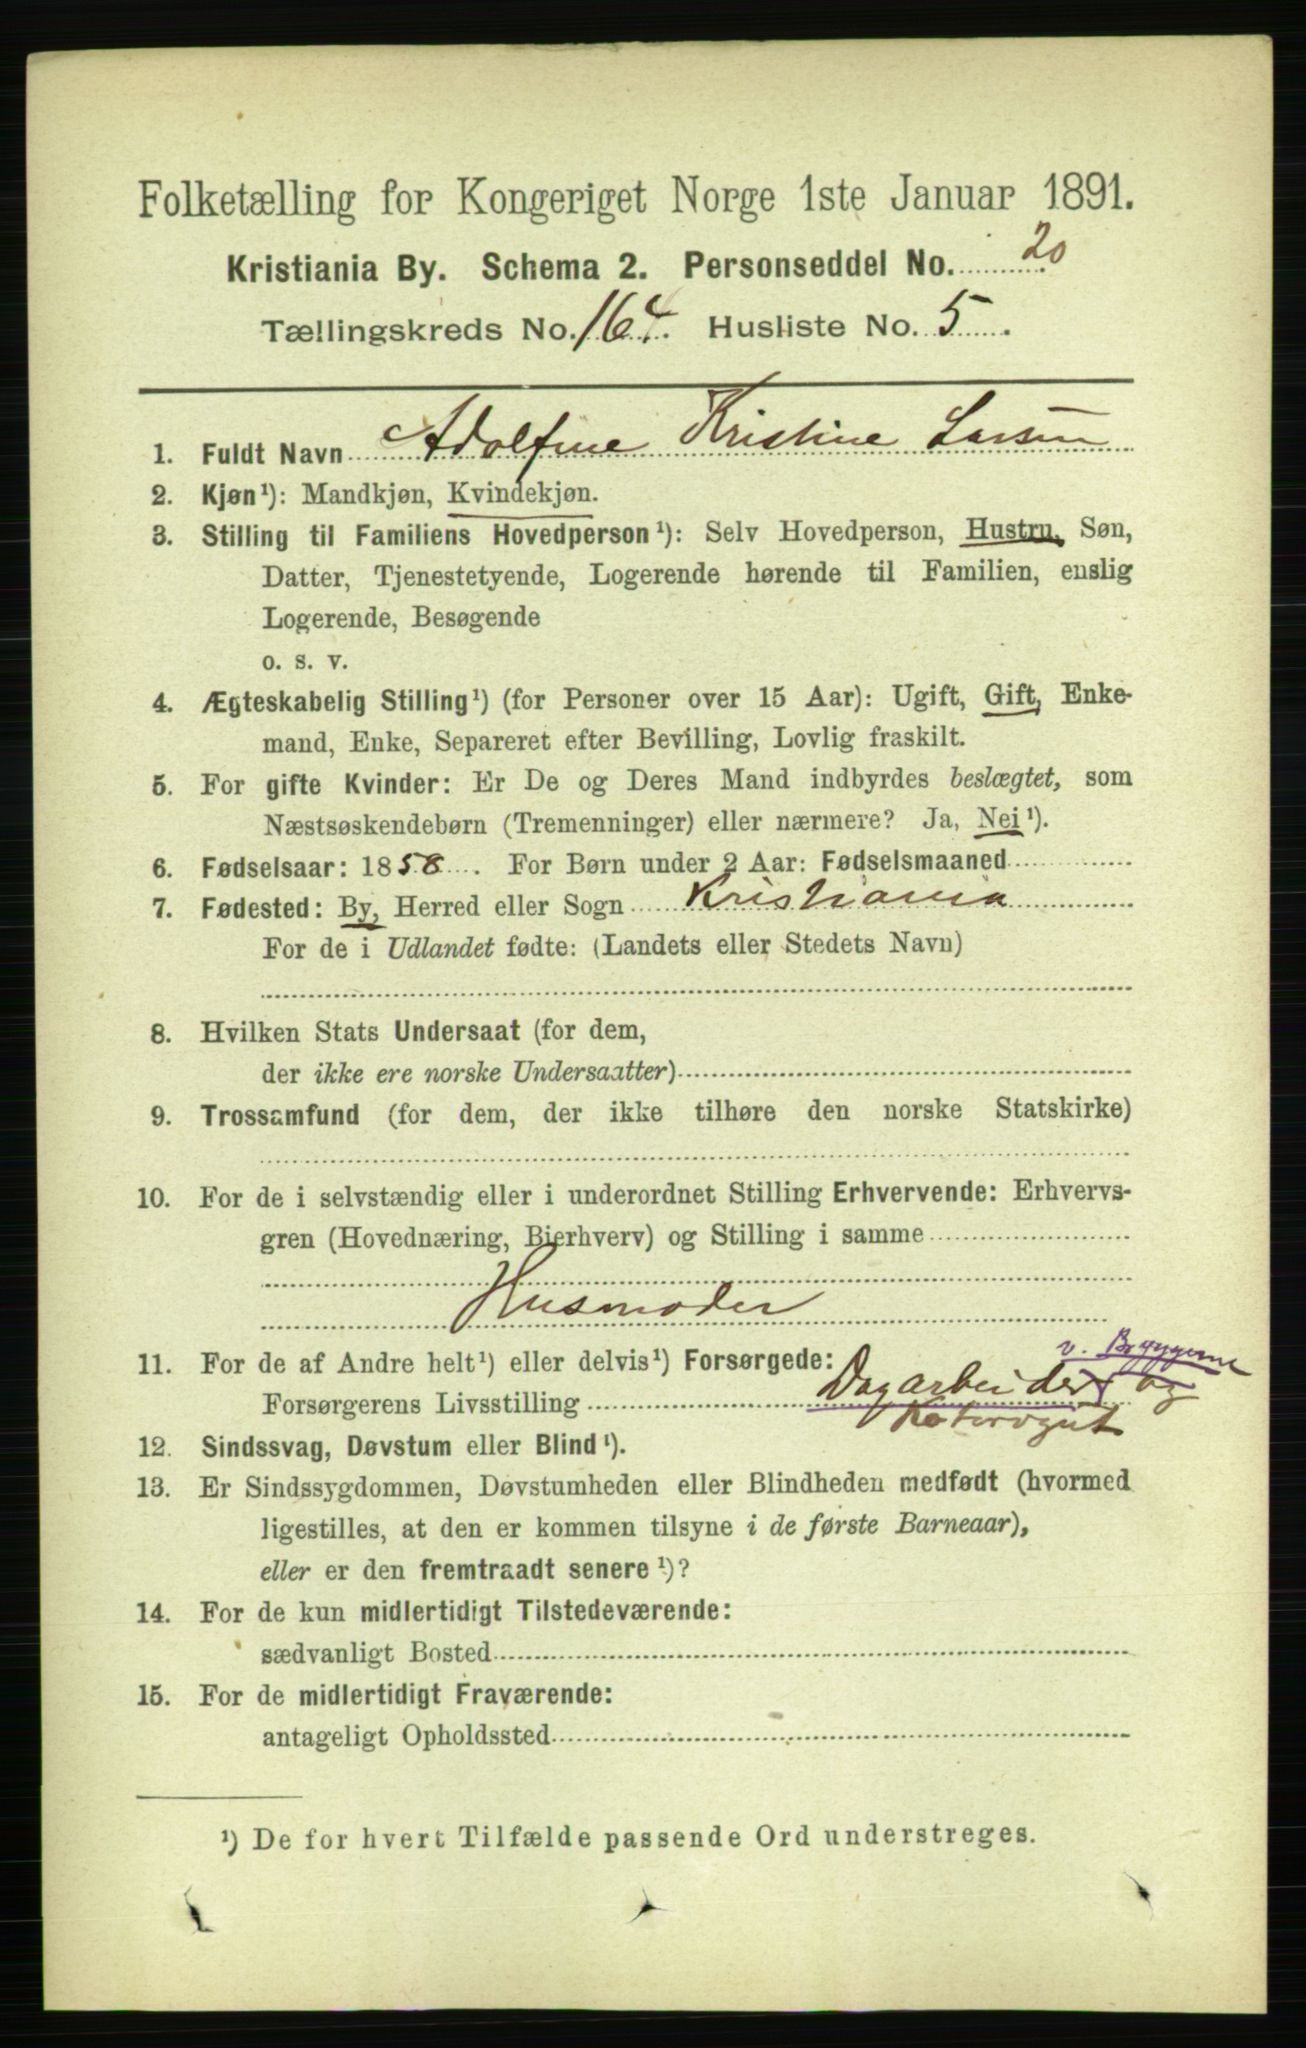 Folketælling for Kongeriget Norge 1ste Januar 1891.
Kristiania By. Schema 2. Personseddel No. 20
Tællingskreds No. 164. Husliste No. 5.
1. Fuldt Navn Adolfine Kristine Larsen
2. Kjøn¹): Mandkjøn, Kvindekjøn.
3. Stilling til Familiens Hovedperson¹): Selv Hovedperson, Hustru, Søn,
Datter, Tjenestetyende, Logerende hørende til Familien, enslig
Logerende, Besøgende
o. s. v.
4. Ægteskabelig Stilling¹) (for Personer over 15 Aar): Ugift, Gift, Enke-
mand, Enke, Separeret efter Bevilling, Lovlig fraskilt.
5. For gifte Kvinder: Er De og Deres Mand indbyrdes beslægtet, som
Næstsøskendebørn (Tremenninger) eller nærmere? Ja, Nei¹).
6. Fødselsaar: 1858. For Børn under 2 Aar: Fødselsmaaned
7. Fødested: By, Herred eller Sogn Kristiania
For de i Udlandet fødte: (Landets eller Stedets Navn)
8. Hvilken Stats Undersaat (for dem,
der ikke ere norske Undersaatter)
9. Trossamfund (for dem, der ikke tilhøre den norske Statskirke)
10. For de i selvstændig eller i underordnet Stilling Erhvervende: Erhvervs-
gren (Hovednæring, Bierhverv) og Stilling i samme
Husmoder
11. For de af Andre helt¹) eller delvis¹) Forsørgede:
v. Bryggerne
Forsørgerens Livsstilling Dagarbeider og
12. Sindssvag, Døvstum eller Blind¹).
13. Er Sindssygdommen, Døvstumheden eller Blindheden medfødt (hvormed
ligestilles, at den er kommen tilsyne i de første Barneaar),
eller er den fremtraadt senere¹)?
14. For de kun midlertidigt Tilstedeværende:
sædvanligt Bosted
15. For de midlertidigt Fraværende:
antageligt Opholdssted
¹) De for hvert Tilfælde passende Ord understreges.